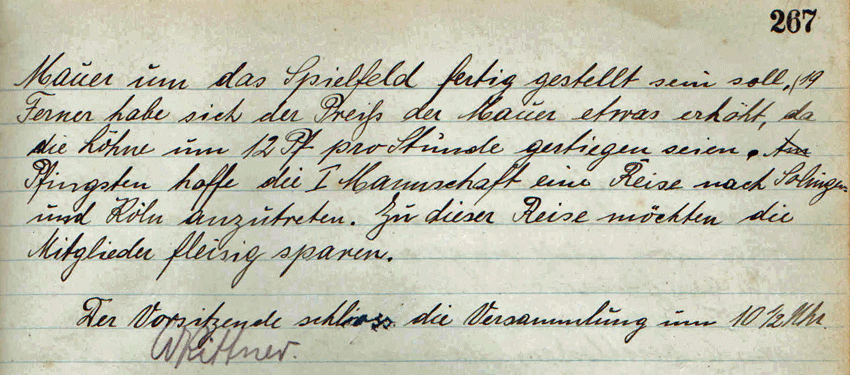 267
Mauer um das Spielfeld fertig gestellt sein soll. (19
Ferner habe sich der Preiß der Mauer etwas erhöht, da
die Löhne um 12 Pf pro Stunde gestiegen seien. Am
Pfingsten hoffe die I Mannschaft eine Reise nach Solingen
und Köln anzutreten. Zu dieser Reise möchten die
Mitglieder fleisig sparen.
Der Vorsitzende schloss die Versammlung um 10 1/2 Uhr.